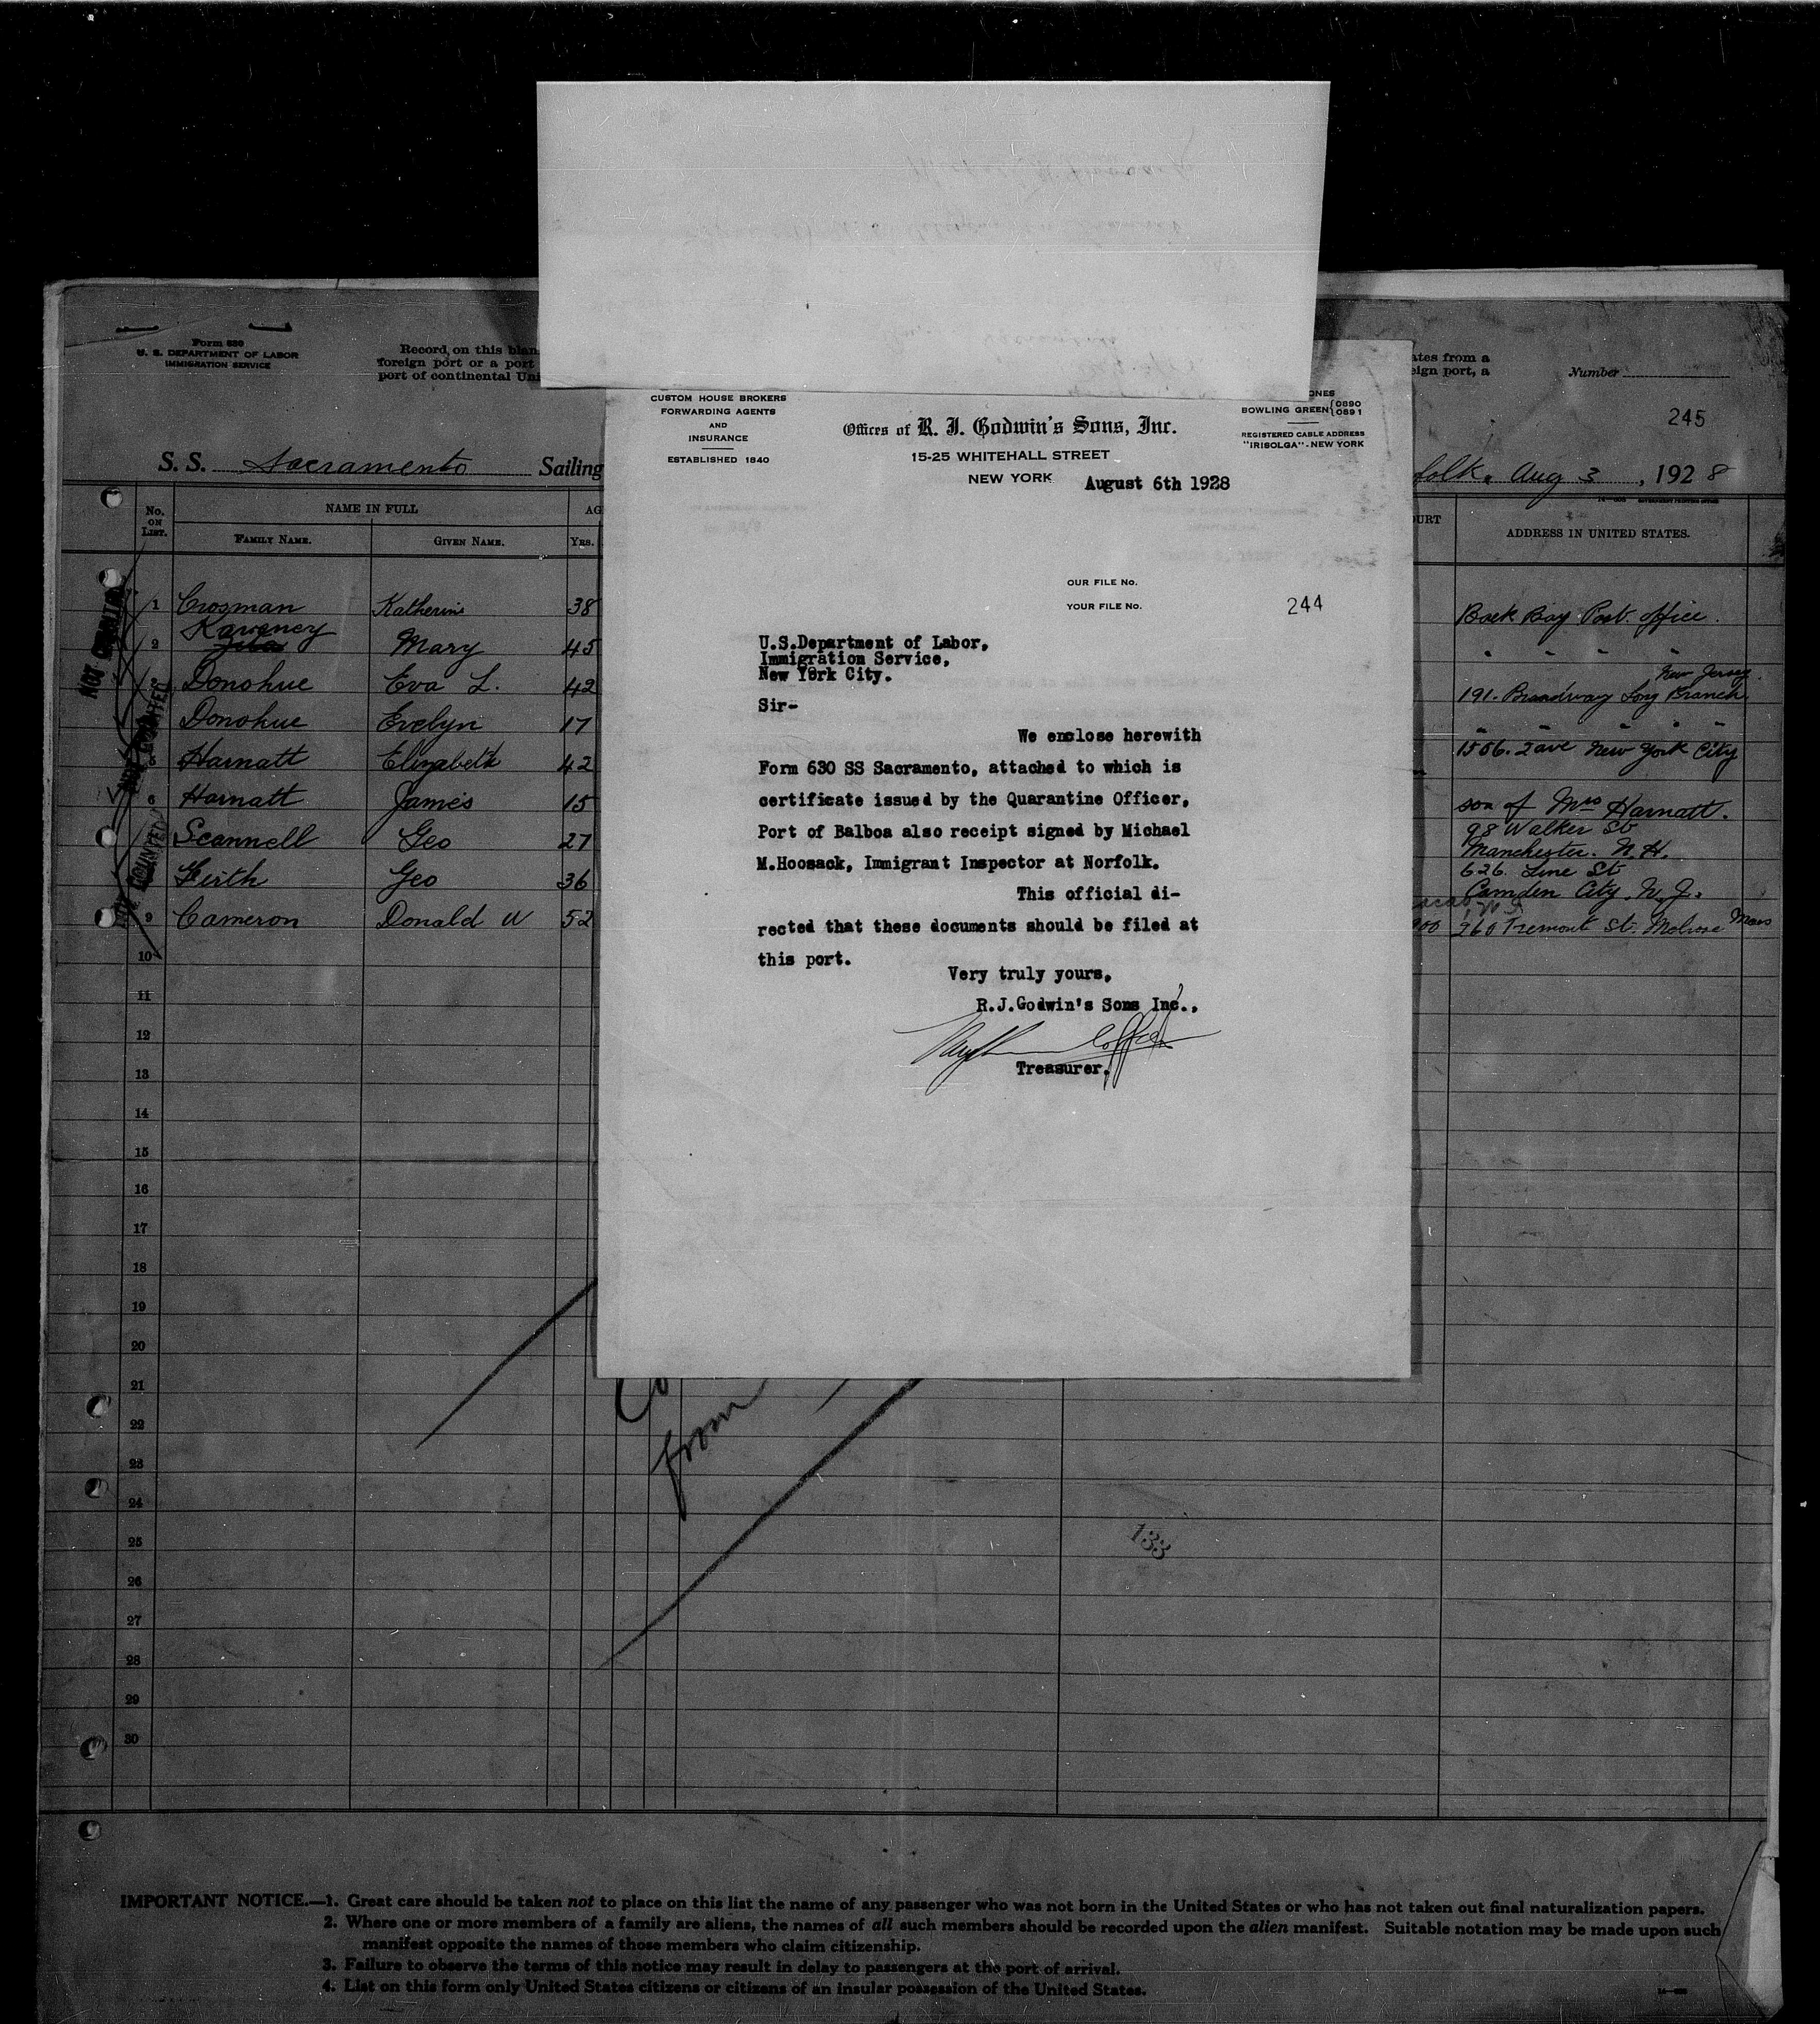 Form 630
U. S. DEPARTMENT OF LABOR
IMMIGRATION SERVICE
Record on this blan
foreign port or a port
port of continental Uni
ates from a
eign port, a
Number
245
S. S. Sacramento Sailing
folk. Aug 3, 1928
No. ON LIST.
NAME IN FULL
FAMILY NAME.
GIVEN NAME.
AG
YRS.
URT
ADDRESS IN UNITED STATES.
1 Crosman Katherine 38 Back Bay Post. office.
2 Kaveney Mary 45 " " " "
Donohue Eva L. 42 191. Broadway Long Branch New Jersey.
Donohue Evelyn 17 " " " " "
5 Harnatt Elizabeth 42 1506. 2 ave New York City
6 Harnatt James 15 son of Mrs Harnatt.
Scannell Geo 27 98 Walker St
Manchester. N. H.
Geo 36 626. Line St
Camden City. N. J.
9 Cameron Donald W 52 260 Tremont St. Melrose Mass
10
11
12
13
14
15
16
17
18
19
20
21
22
23
24
25
26
27
28
29
30
NOT COUNTED
NOT COUNTED
NOT COUNTED
from
133
CUSTOM HOUSE BROKERS
FORWARDING AGENTS
AND
INSURANCE
ESTABLISHED 1840
Offices of R. J. Godwin's Sons, Inc.
15-25 WHITEHALL STREET
NEW YORK
August 6th 1928
ONES
BOWLING GREEN {0890
0891
REGISTERED CABLE ADDRESS
"IRISOLGA"-NEW YORK
OUR FILE No.
YOUR FILE No.
244
U.S.Department of Labor,
Immigration Service,
New York City.
Sir-
We enclose herewith
Form 630 SS Sacramento, attached to which is
certificate issued by the Quarantine Officer,
Port of Balboa also receipt signed by Michael
M.Hoosack, Immigrant Inspector at Norfolk.
This official di-
rected that these documents should be filed at
this port.
Very truly yours,
R.J.Godwin's Sons Inc.,
Treasurer.
IMPORTANT NOTICE.—1. Great care should be taken not to place on this list the name of any passenger who was not born in the United States or who has not taken out final naturalization papers.
2. Where one or more members of a family are aliens, the names of all such members should be recorded upon the alien manifest. Suitable notation may be made upon such
manifest opposite the names of those members who claim citizenship.
3. Failure to observe the terms of this notice may result in delay to passengers at the port of arrival.
4. List on this form only United States citizens or citizens of an insular possession of the United States.